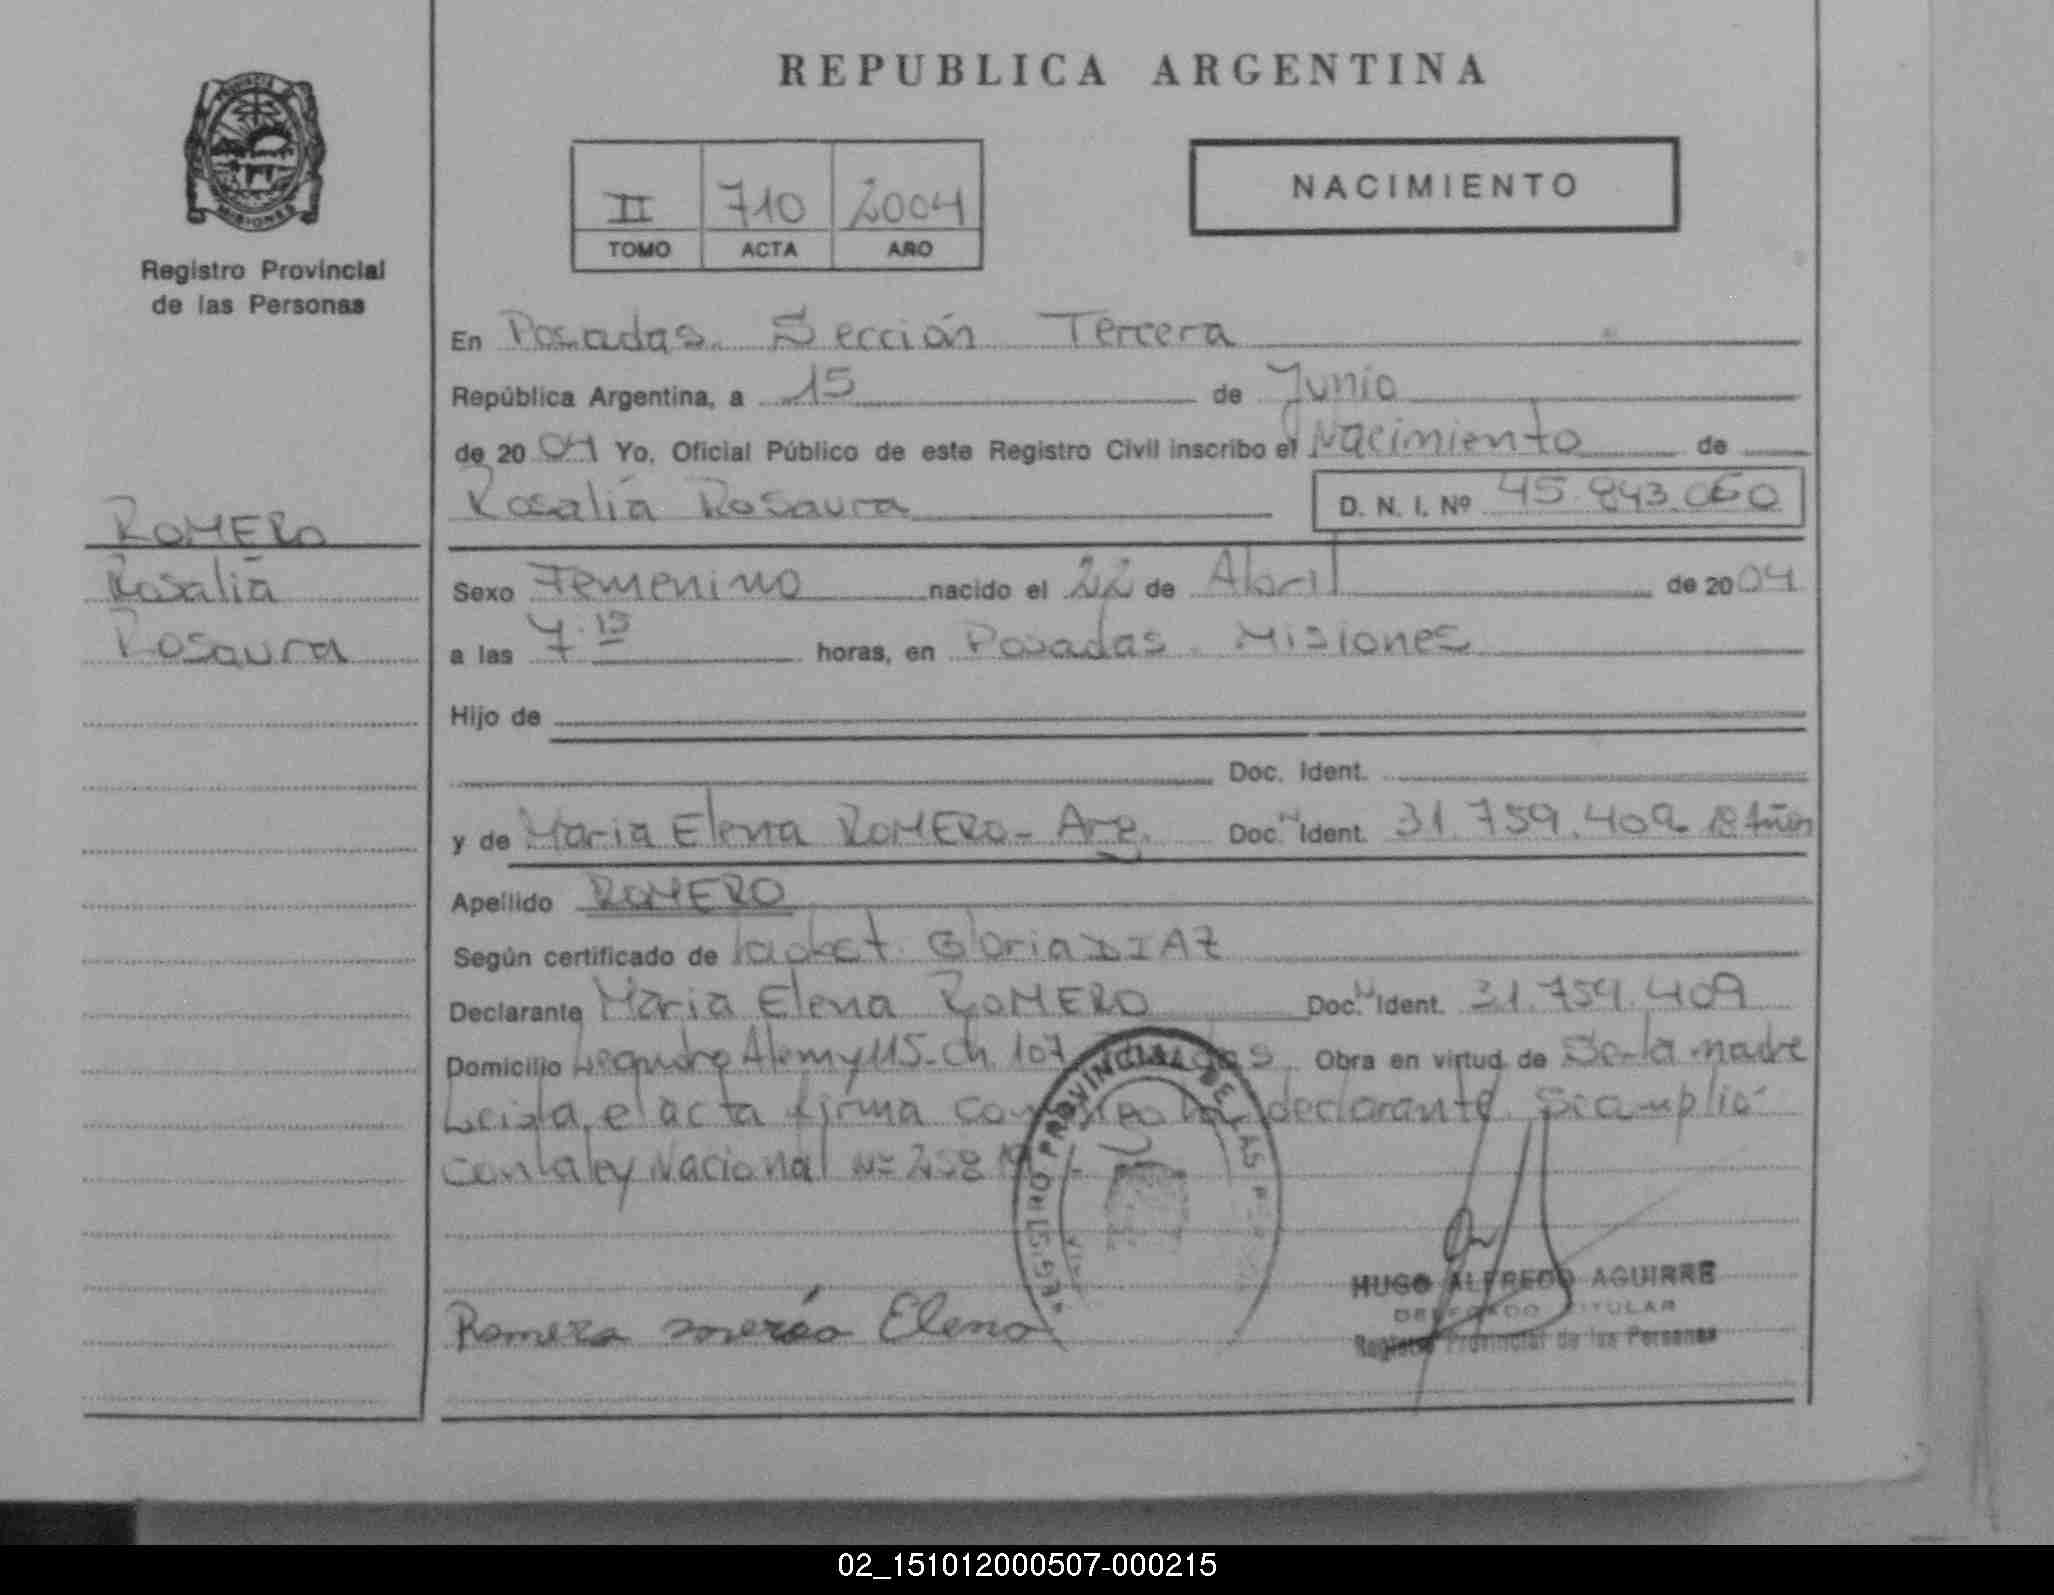 REPUBLICA ARGENTINA
PROVINCIA
MISIONES
Registro Provincial
de las Personas
II 710 2004
TOMO ACTA AÑO
NACIMIENTO
En Posadas. Sección Tercera
República Argentina, a 15 de Junio
de 2004 Yo, Oficial Público de este Registro Civil inscribo el Nacimiento de
Rosalía Rosaura D. N. I. Nº 45.843.060
ROMERO
Rosalía
Rosaura
Sexo Femenino nacido el 22 de Abril de 2004
a las 7.15 horas, en Posadas. Misiones
Hijo de
Doc. Ident.
y de Maria Elena ROMERO - Arg. Doc. Ident. 31.759.409 18 Años
Apellido ROMERO
Según certificado de Gloria DIAZ
Declarante Maria Elena ROMERO Doc. Ident. 31.759.409
Domicilio Leandro Alem y 115 - Ch. 107 Obra en virtud de Ser la madre
Leida el acta firma la declarante. Se amplió
con la ley Nacional Nº
REGISTRO PROVINCIAL DE LAS PERSONAS
Romero Elena
HUGO ALFREDO AGUIRRE
DELEGADO TITULAR
Registro Provincial de las Personas
02_151012000507-000215